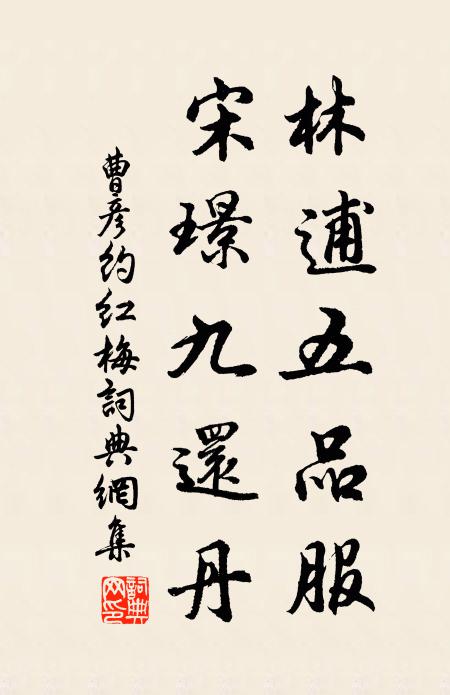 林逋五品服
宋璟九還丹
曹彦約紅梅詞典網集
詞典網印